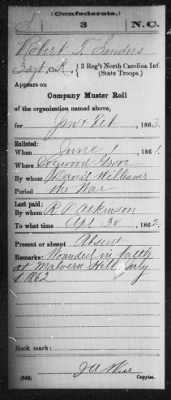 (Confederate.)
S 3 N.C.
Robert F. Sanders
Sergt, Co. K, 3 Reg't North Carolina Inf.
(State Troops.)
Appears on
Company Muster Roll
of the organization named above,
for Jan & Feb, 1863.
Enlisted:
When June 1, 186 1.
Where
By whom David Williams
Period the War
Last paid:
By whom R P Atkinson
To what time Apr 30, 1862.
Present or absent Absent
Remarks: Wounded in battle
at Malvern Hill July
1 1862
Book mark:
(642) Copyist.